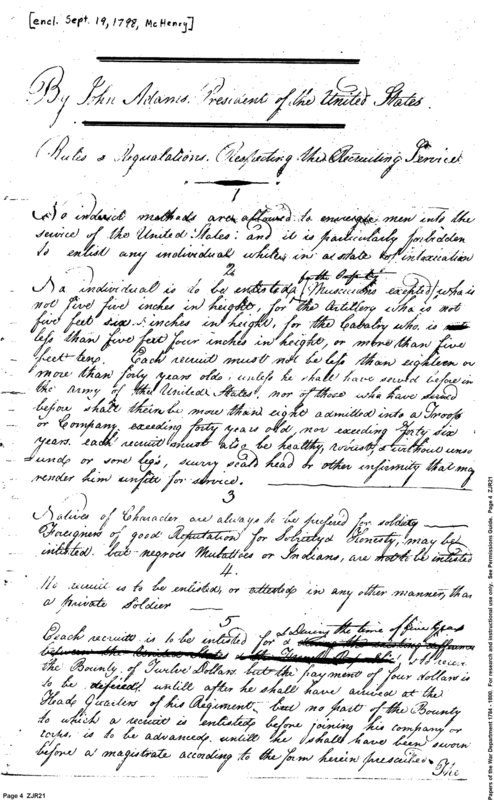 [encl. Sept. 19, 1798, McHenry]
By John Adams. President of the United States.
Rules & Regualations. Respecting the Recruiting Service
1
No indirect methods are allowed to men into the
service of the United States: and it is particularly forbidden
to enlist any individual while in a state of intoxication
2
for the Infantry
No individual is to be enlisted (Musicians excepted) who is
not five five inches in height, for the Artillery who is not
five feet six inches in height, for the Cavalry who is
less than five feet four inches in height, or more than five
feet ten. Each recruit must not be less than eighteen or
more than forty years old, unless he shall have served before in
the Army of the United States, nor of those who have served
before shall their be more than eight admitted into a Troop
or Company exeeding forty years old, nor exeeding forty six
years. each recruit must also be healthy, robust, & without unso
und or sore legs, scurvy scald head or other infirmity that may
render him unfitt for service.
3
Natives of Character are always to be prefered for
Foreigners of good Reputation for Honesty, may be
inlisted. but negroes Mulattoes or Indians, are not to be inlisted
4
No recuit is to be enlisted, or attested in any other manner, than
a private Soldier
5
During the time of five years
Each recruitt is to be inlisted for & to receive
the Bounty of Twelve Dollars but the payment of four dollars is
to be defered untill after he shall have arrived at the
Head Quarters of his Regiment, but no part of the Bounty
to which a recruit is entisted before joining his company or
corps. is to be advanced untill he shall have been sworn
before a magistrate according to the form herein prescribed.
The
Page 4 ZJR21
Papers of the War Department 1784 - 1800. For research and instructional use only. See Permissions Guide. Page 4 ZJR21